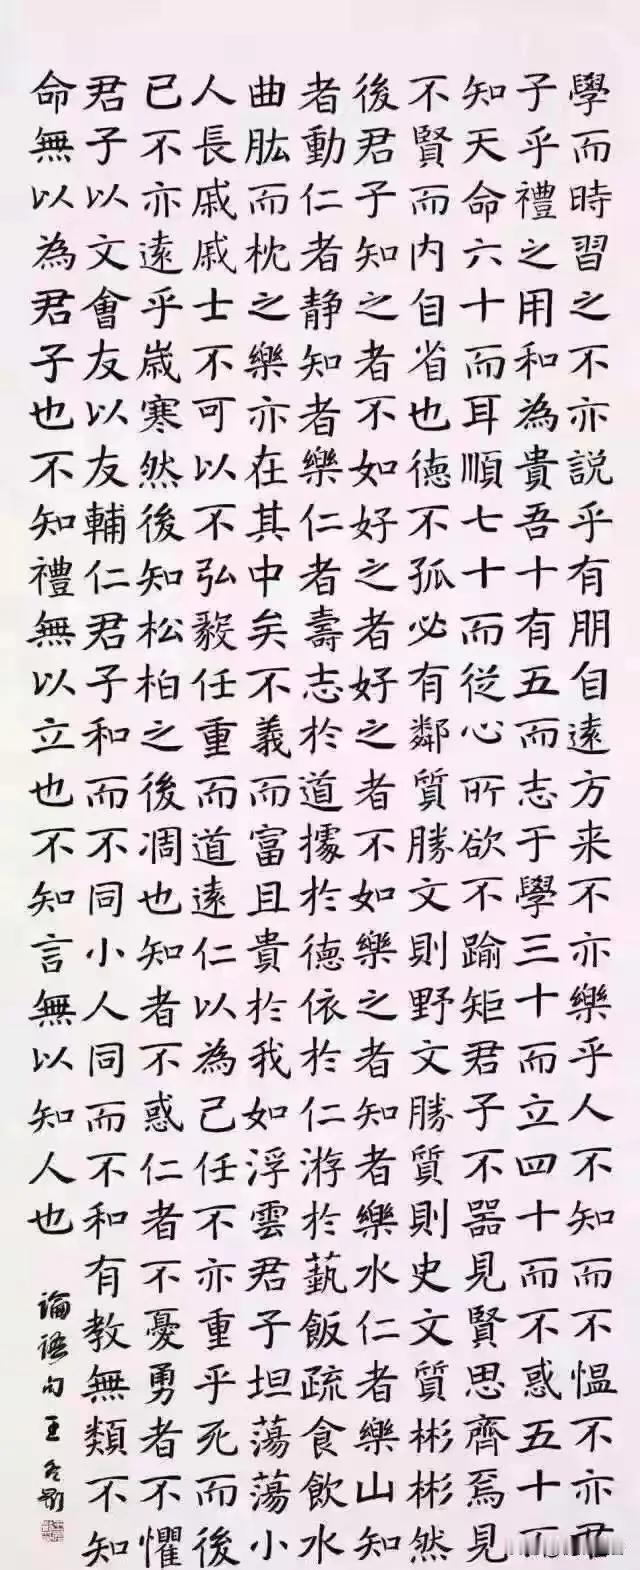 學而時習之不亦説乎有朋自遠方来不亦樂乎人不知而不愠不亦君
子乎禮之用和為貴吾十有五而志于學三十而立四十而不惑五十而
知天命六十而耳順七十而從心所欲不踰矩君子不器見賢思齊焉見
不賢而内自省也德不孤必有鄰質勝文則野文勝質則史文質彬彬然
後君子知之者不如好之者好之者不如樂之者知者樂水仁者樂山知
者動仁者静知者樂仁者壽志於道據於德依於仁游於藝飯疏食飲水
曲肱而枕之樂亦在其中矣不義而富且貴於我如浮雲君子坦蕩蕩小
人長戚戚士不可以不弘毅任重而道遠仁以為己任不亦重乎死而後
已不亦遠乎歲寒然後知松柏之後凋也知者不惑仁者不憂勇者不懼
君子以文會友以友輔仁君子和而不同小人同而不和有教無類不知
命無以為君子也不知禮無以立也不知言無以知人也
論語句王